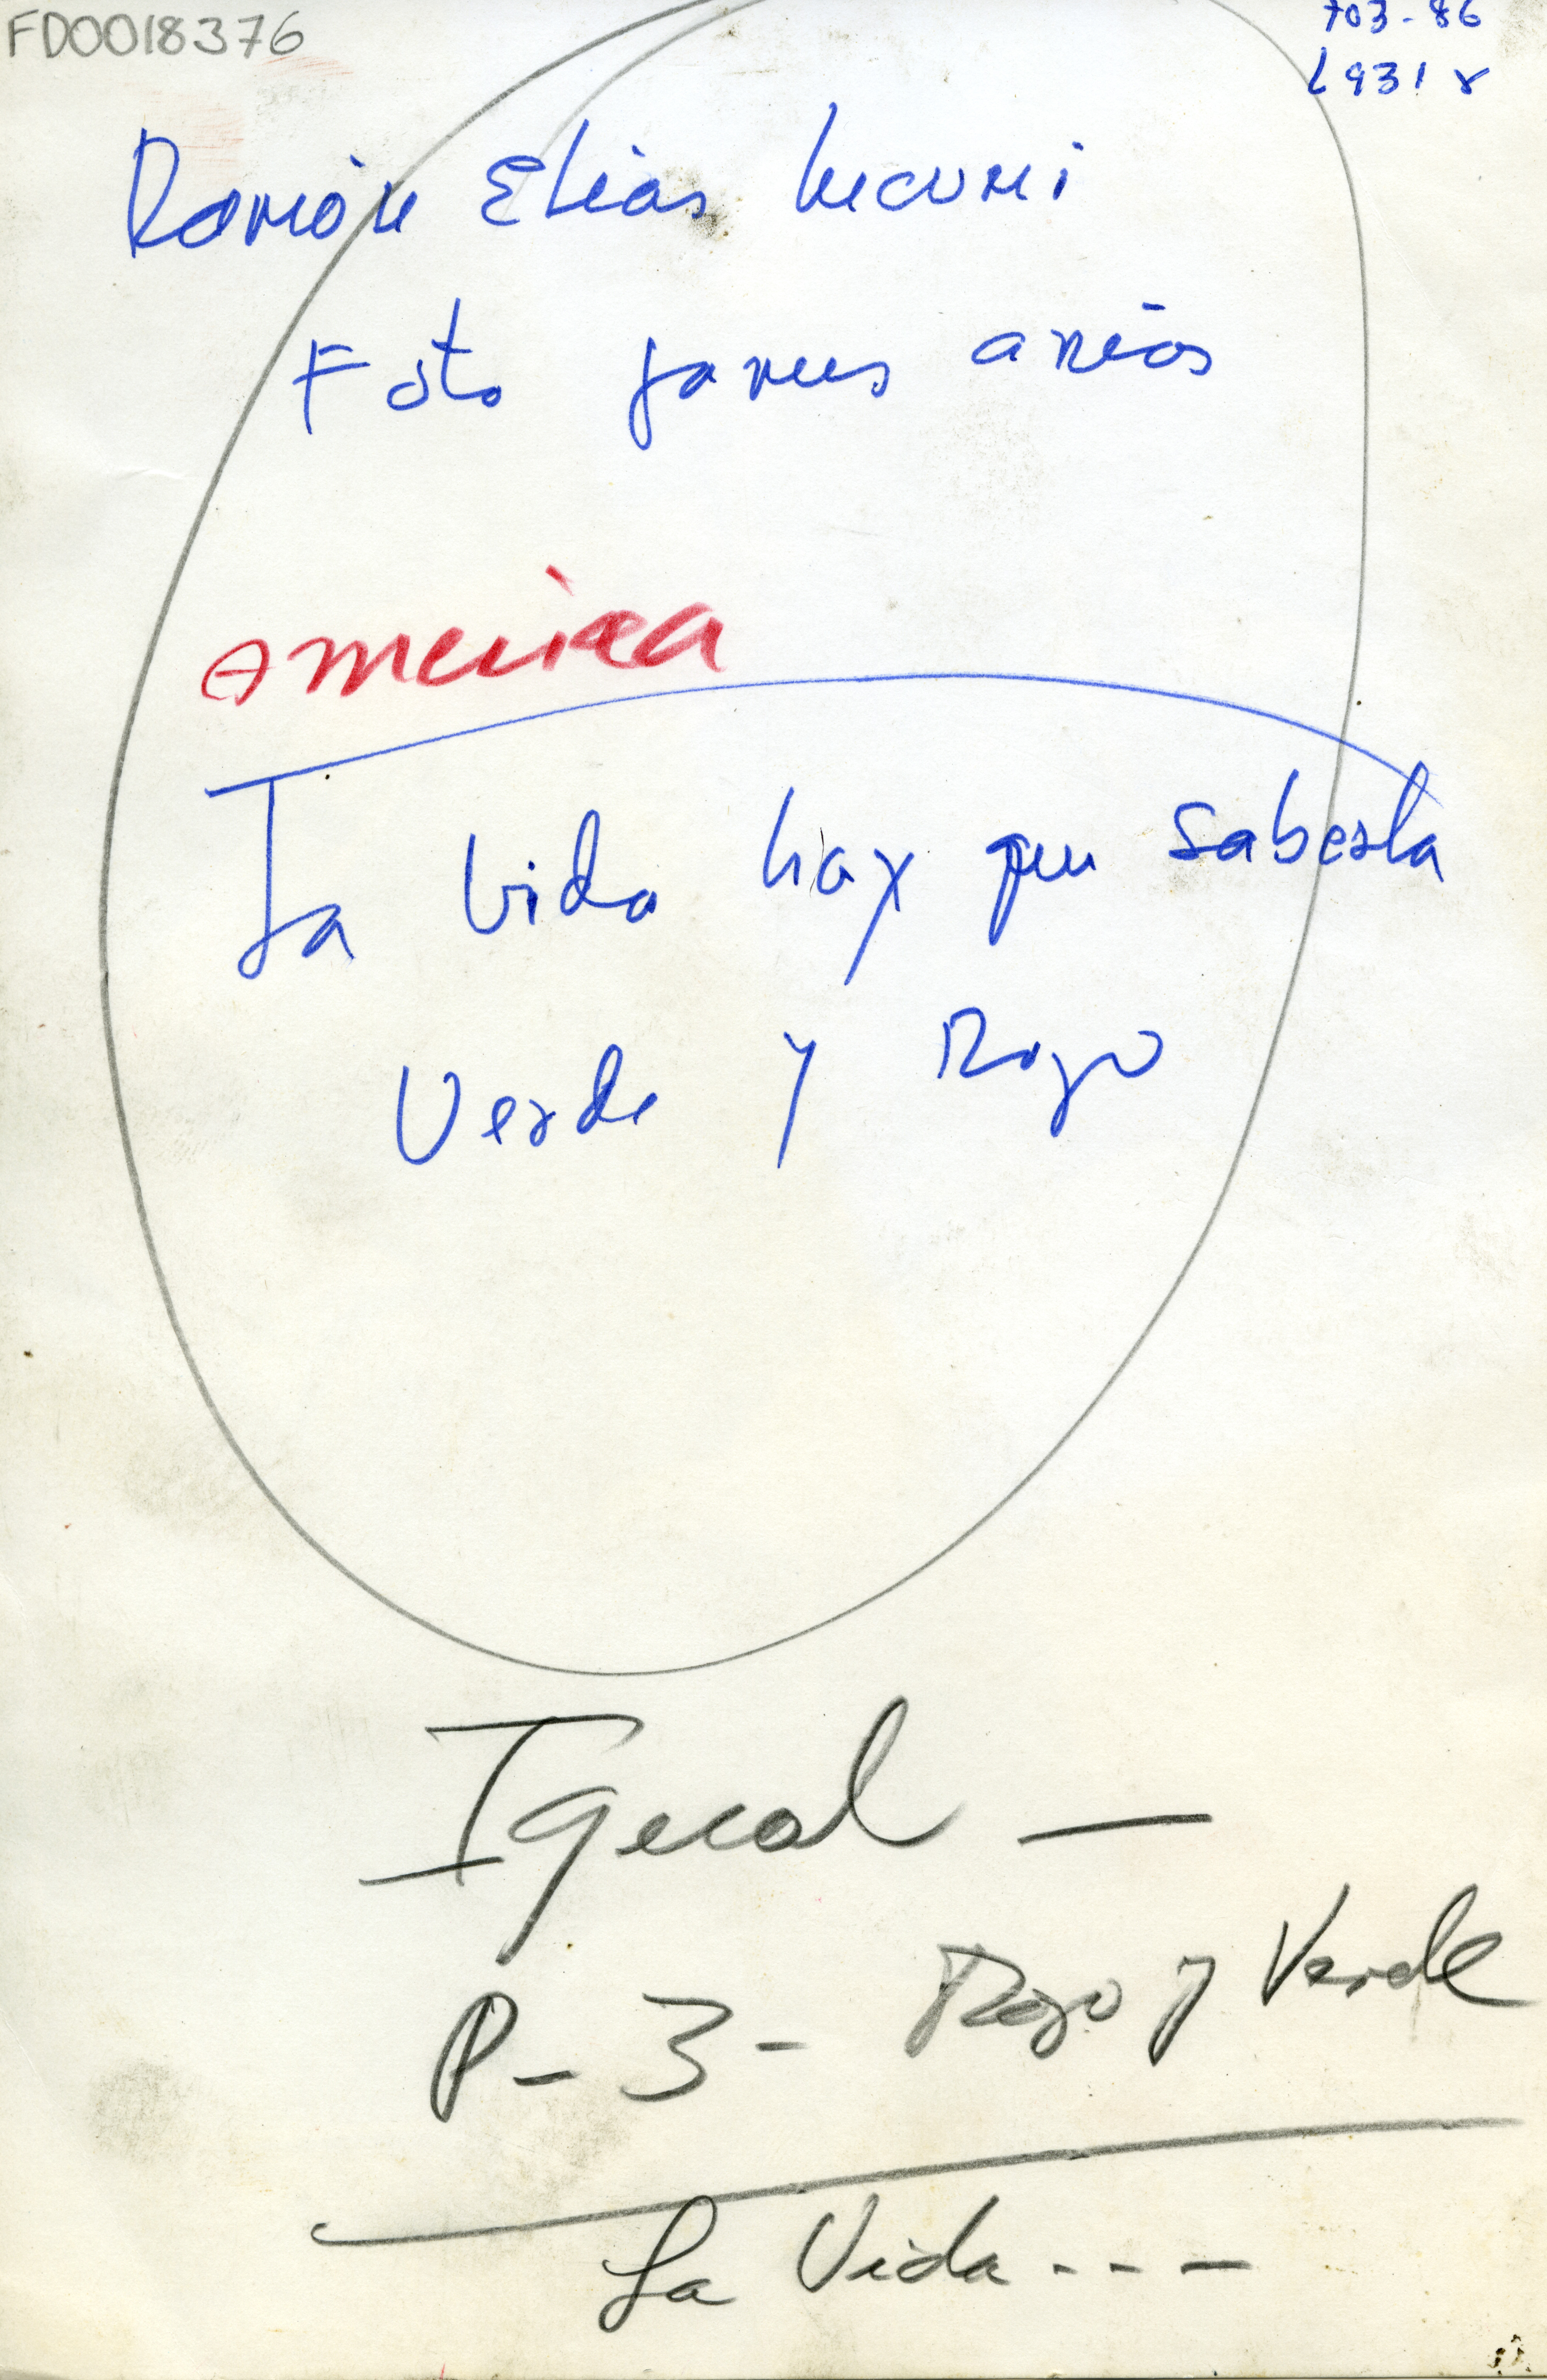 FD0018376
703-86
L931r
Ramón Elias
Foto James arias
America
La Vida hay que saberla
Verde y Rojo
Igual -
P-3- Rojo y Verde
La Vida ---